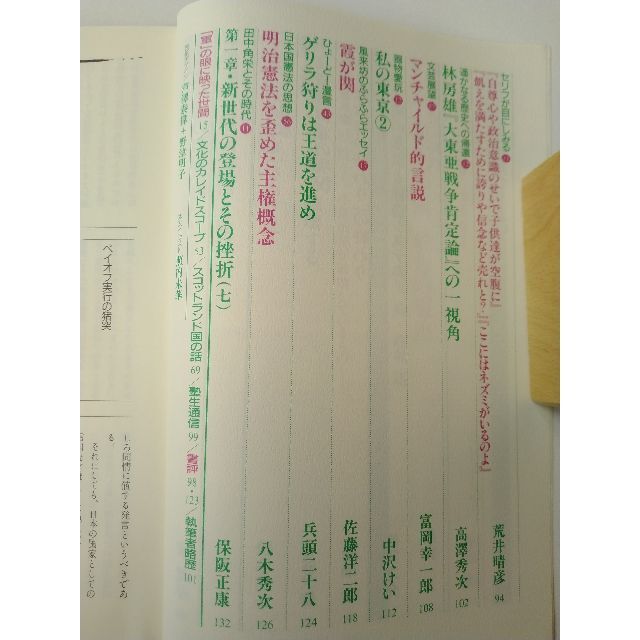 セリフが目にしみる
『自尊心や政治意識のせいで子供達が空腹に』
『飢えを満たすために誇りや信念など売れと?』『ここにはネズミがいるのよ』
荒井晴彦 94
遥かなる歴史への帰還
林房雄『大東亜戦争肯定論』への一視角
高澤秀次 102
文芸展望
マンチャイルド的言説
富岡幸一郎 108
器物愛玩
私の東京②
中沢けい 112
風来坊のふらふらエッセイ
霞が関
佐藤洋二郎 118
ひょーどー漫言
ゲリラ狩りは王道を進め
兵頭二十八 124
日本国憲法の思想
明治憲法を歪めた主権概念
八木秀次 126
田中角栄とその時代
第一章・新世代の登場とその挫折(七)
保阪正康 132
「軍」の眼に映った世間 15/文化のカレイドスコープ 63/スコットランド国の話 69/塾生通信 99/書評 98・123/執筆者略歴 101
ペイオフ実行の猪突
しろ同情に値する発言というべきであ
る。
それにしても、日本の国家としての